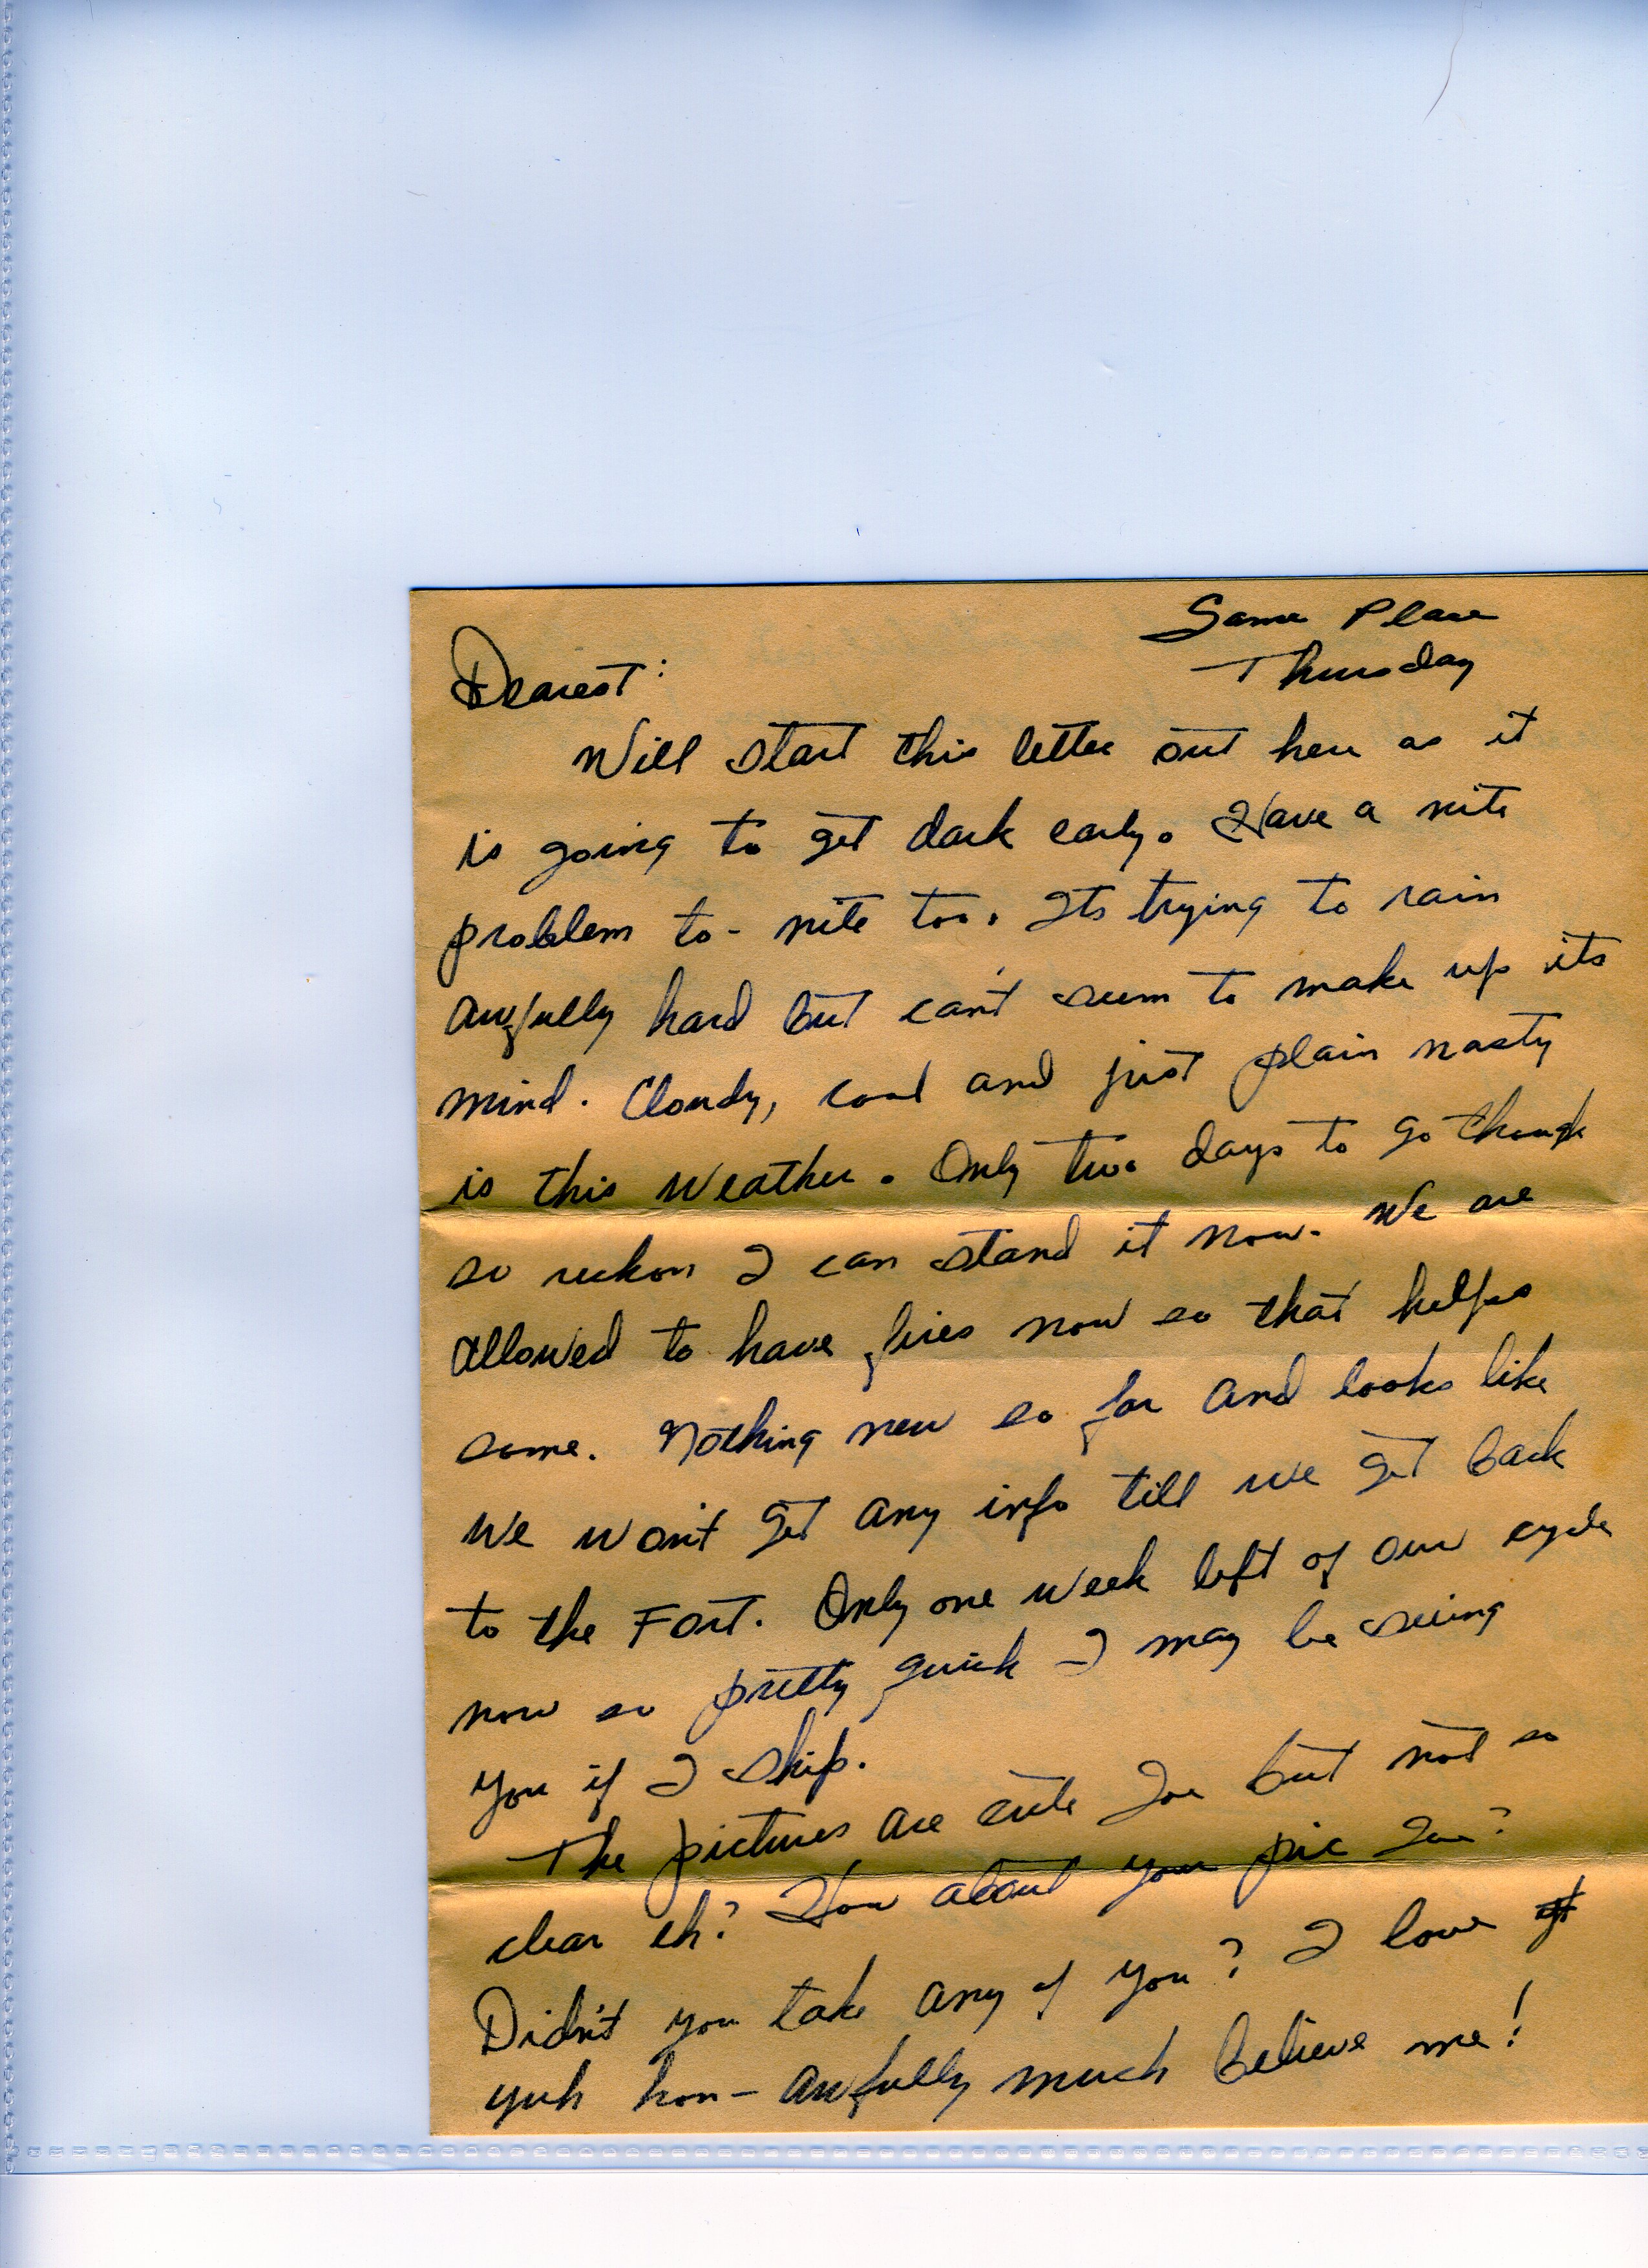 Same Place
Thursday
Dearest:
Will start this letter out here as it
is going to get dark early. Have a nite
problem to-nite too. Its trying to rain
awfully hard but can't seem to make up its
mind. Cloudy, cool and just plain nasty
is this weather. Only two days to go though
so reckon I can stand it now. We are
allowed to have fires now so that helps
some. Nothing new so far and looks like
we won't get any info till we get back
to the Fort. Only one week left of our cycle
now so pretty quick I may be seeing
you if I ship.
The pictures are cute Jou but not so
clear eh? How about your pic Jou?
Didn't you take any of you? I love
yuh hon - awfully much believe me!